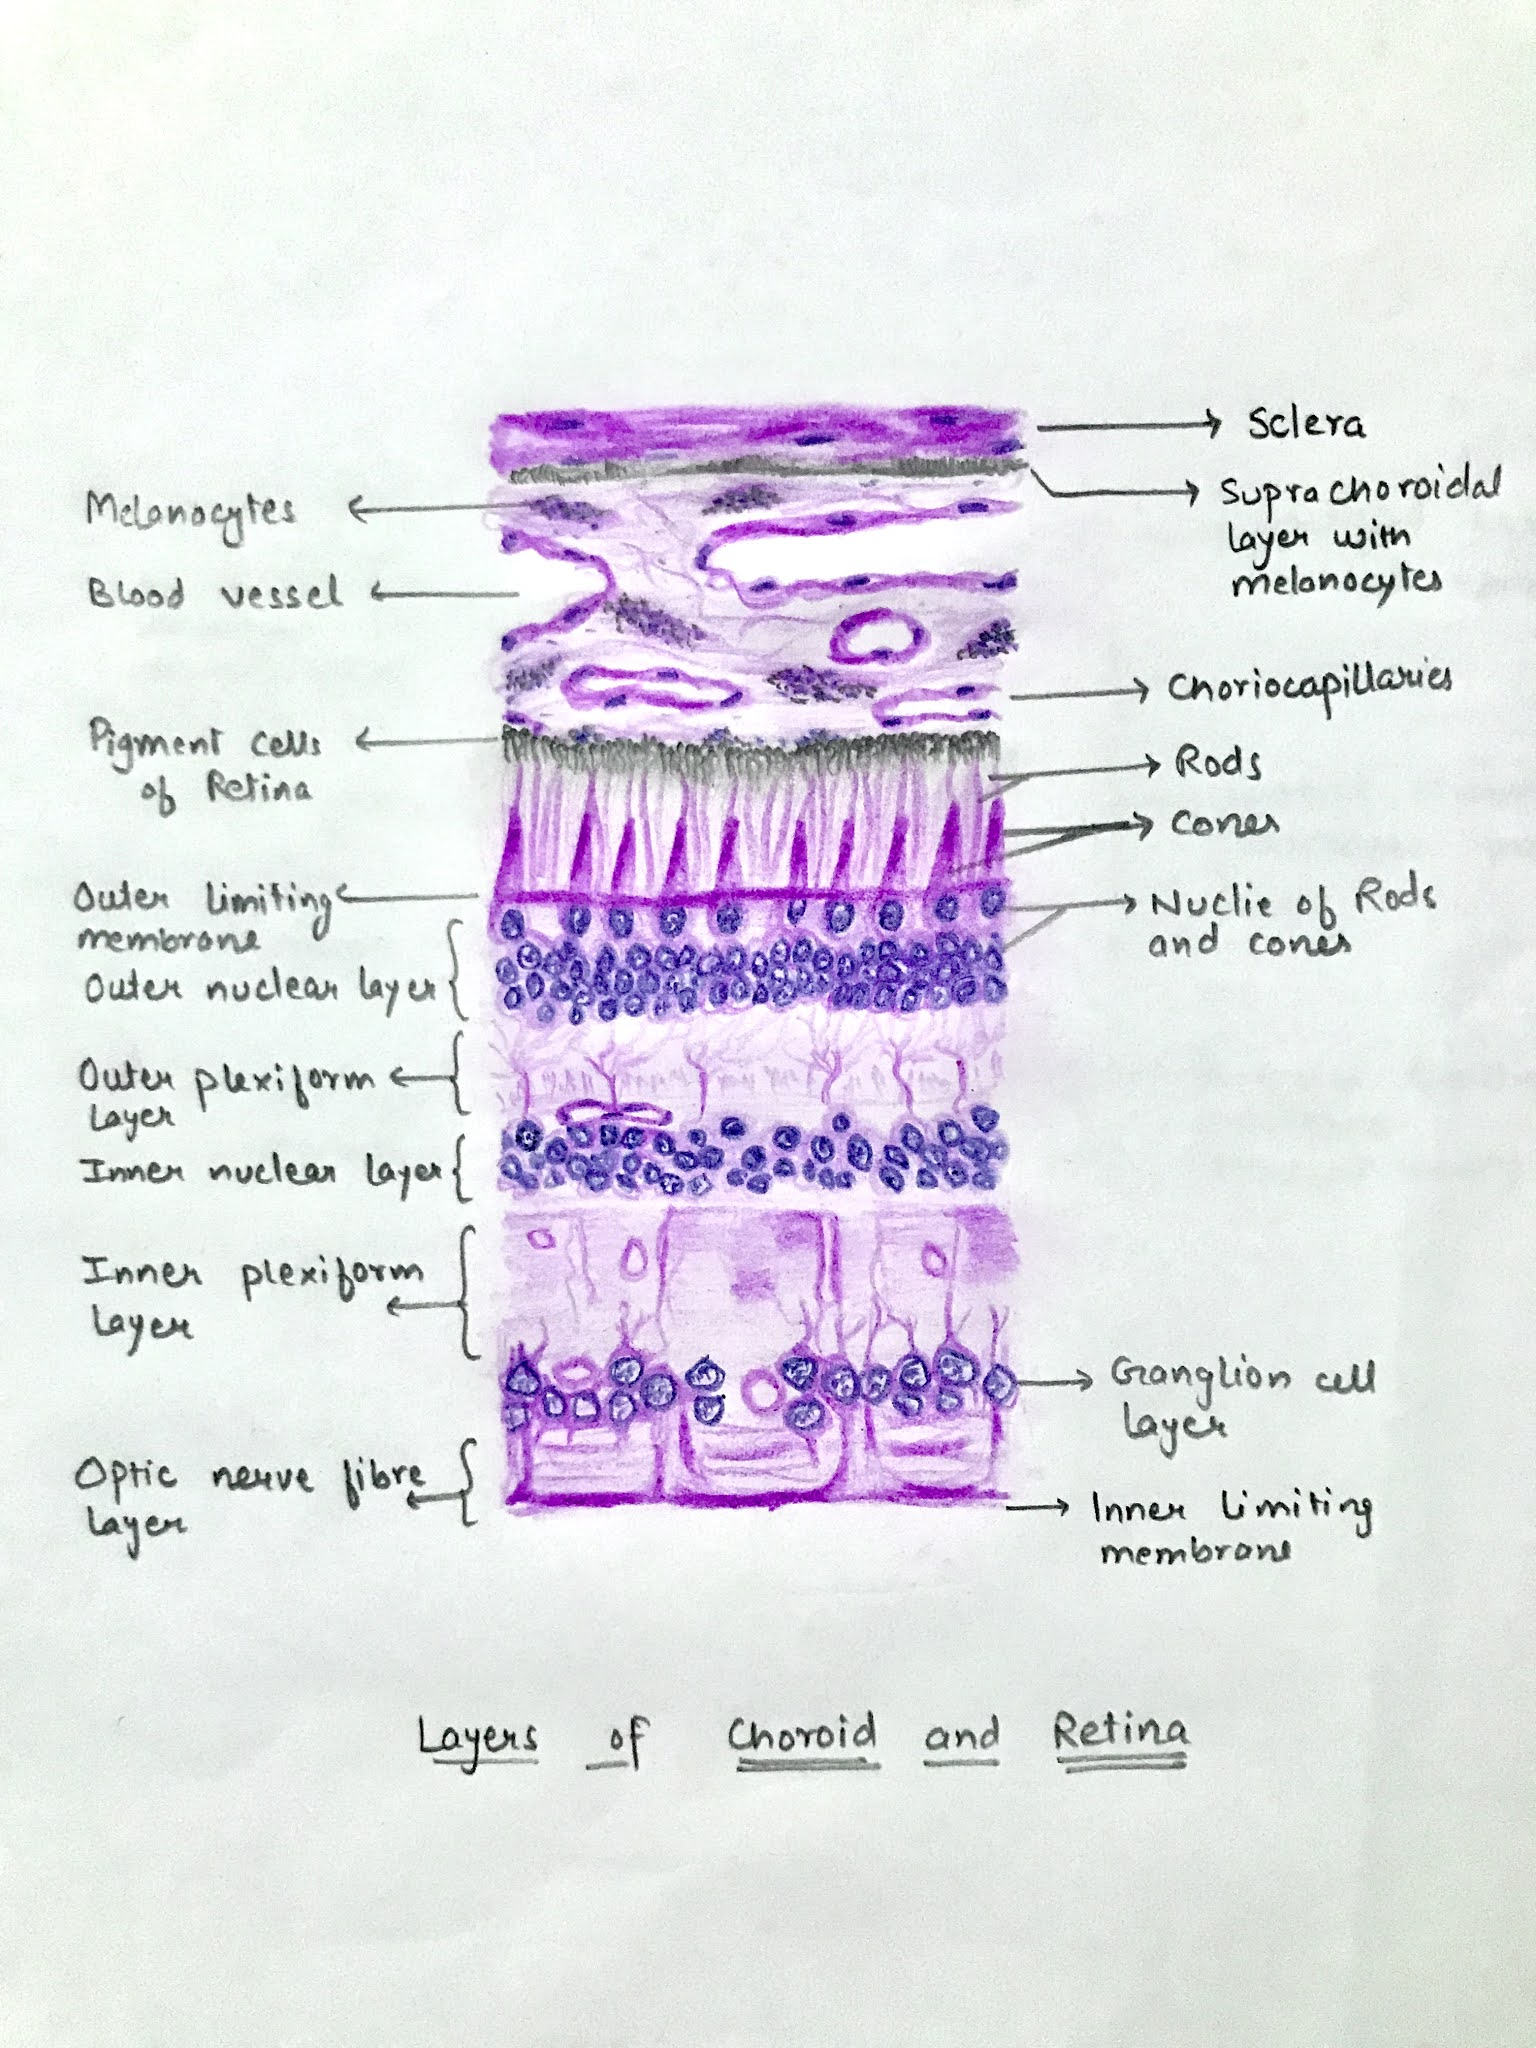 Sclera
Melanocytes
Suprachoroidal
layer with
melanocytes
Blood vessel
Choriocapillaries
Pigment cells
of Retina
Rods
Cones
Outer limiting
membrane
Nuclie of Rods
and cones
Outer nuclear layer
Outer plexiform
layer
Inner nuclear layer
Inner plexiform
layer
Ganglion cell
layer
Optic nerve fibre
layer
Inner limiting
membrane
Layers of Choroid and Retina